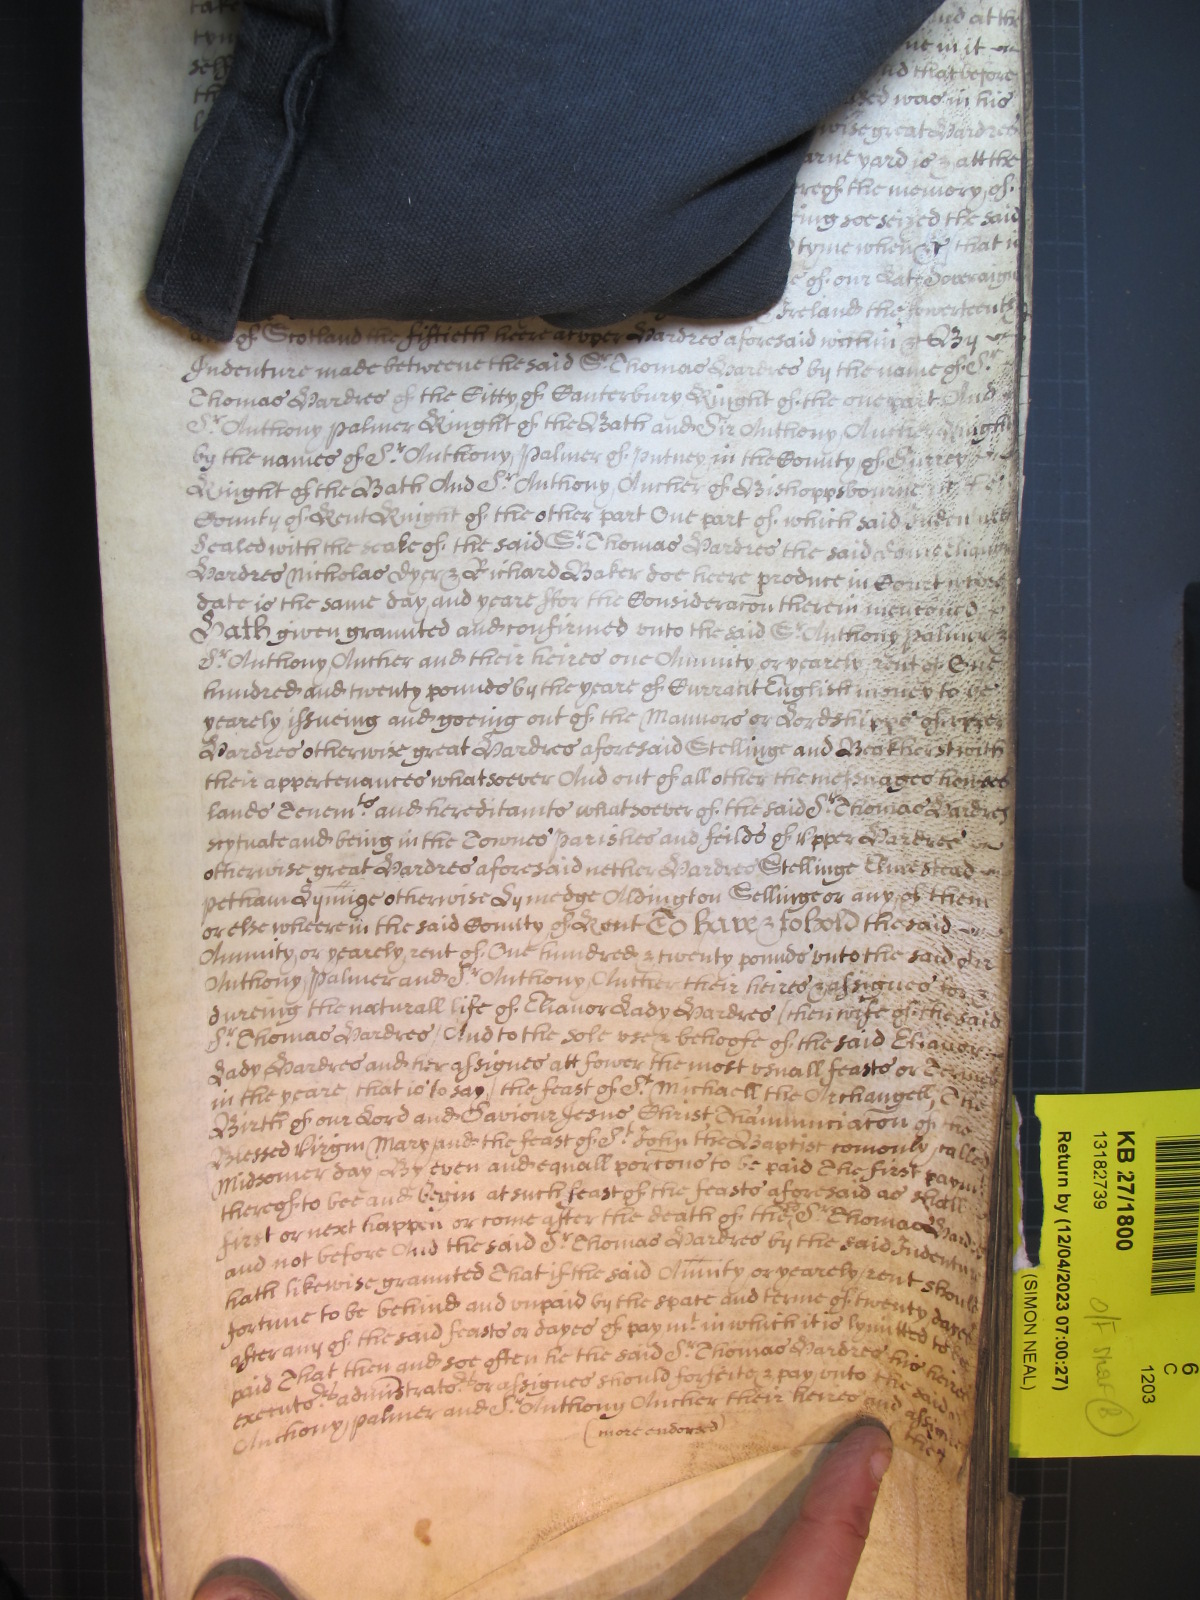 take
tym
seff
and at the
ne in it
nd that before
sed was in his
wise great Hardres
arne yard is & att the
ereof the memory of
eing soe seized the said
tyme when &c that is
e of our Late Soveraign
Ireland the fowerteenth
of Scotland the fiftieth heere at upper Hardres aforesaid within &c By
Indenture made betweene the said Sr. Thomas Hardres by the name of Sr.
Thomas Hardres of the Citty of Canterbury Knight of the one part And
Sr. Anthony Palmer Knight of the Bath and Sir Anthony Aucher Knight
by the names of Sr. Anthony Palmer of Putney in the County of Surrey
Knight of the Bath And Sr. Anthony Aucher of Bishoppsbourne in the
County of Kent Knight of the other part One part of which said Indenture
Sealed with the seale of the said Sr. Thomas Hardres the said Dame Elianor
Hardres Nicholas Dyer & Richard Baker doe heere produce in Court whose
date is the same day and yeare ffor the Consideracon therein menconed
Hath given graunted and confirmed unto the said Sr. Anthony Palmer &
Sr. Anthony Aucher and their heires one Annuity or yearely rent of One
hundred and twenty pounds by the yeare of Currant English money to be
yearely issueing and goeing out of the Mannors or Lordshipps of upper
Hardres otherwise great Hardres aforesaid Stellinge and Beakherst with
their appertenances whatsoever And out of all other the messuages
lands Tenemts and hereditamts whatsoever of the said Sr. Thomas Hardres
scytuate and being in the Townes Parishes and feilds of Upper Hardres
otherwise great Hardres aforesaid nether Hardres Stellinge Elmestead
petham Lyminge otherwise Lymedge Aldington Sellinge or any of them
or elsewheere in the said County of Kent To have & to hold the said
Annuity or yearely rent of One hundred & twenty pounds unto the said Sir
Anthony Palmer and Sr. Anthony Aucher their heires & assignes for &
dureing the naturall life of Elianor Lady Hardres (then wife of the said
Sr. Thomas Hardres) And to the sole use & behoofe of the said Elianor
Lady Hardres and her assignes att fower the most usuall feasts or Termes
in the yeare, that is to say, the feast of St. Michaell the Archangell, The
Birth of our Lord and Saviour Jesus Christ, Thannunciacon of the
Blessed Virgin Mary and the feast of St. John the Baptist comonly called
Midsomer day By even and equall porcons to be paid The first paymt.
thereof to bee and begin at such feast of the feasts aforesaid as shall
first or next happen or come after the death of the sd. Sr. Thomas Hardres
and not before And the said Sr. Thomas Hardres by the said Indenture
hath likewise graunted That if the said Annuity or yearely rent should
fortune to be behind and unpaid by the space and terme of twenty dayes
after any of the said feasts or dayes of paymt. in which it is lymitted to be
paid That then and soe often he the said Sr. Thomas Hardres his heires
executors administrators or assignes should forfeit & pay unto the said Sr.
Anthony Palmer and Sr. Anthony Aucher their heires and assignes
(more endorsed) the
KB 27/1800
13182739
Return by (12/04/2023 07:00:27)
(SIMON NEAL)
6
C
1203